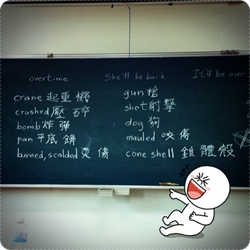 overtime She'll be back... It'll be over
crane 起重機 gun 槍
crushed 壓碎 shot 射擊
bomb 炸彈 dog 狗
pan 平底鍋 mauled 咬傷
burned, scalded 燙傷 cone shell 錐體殼